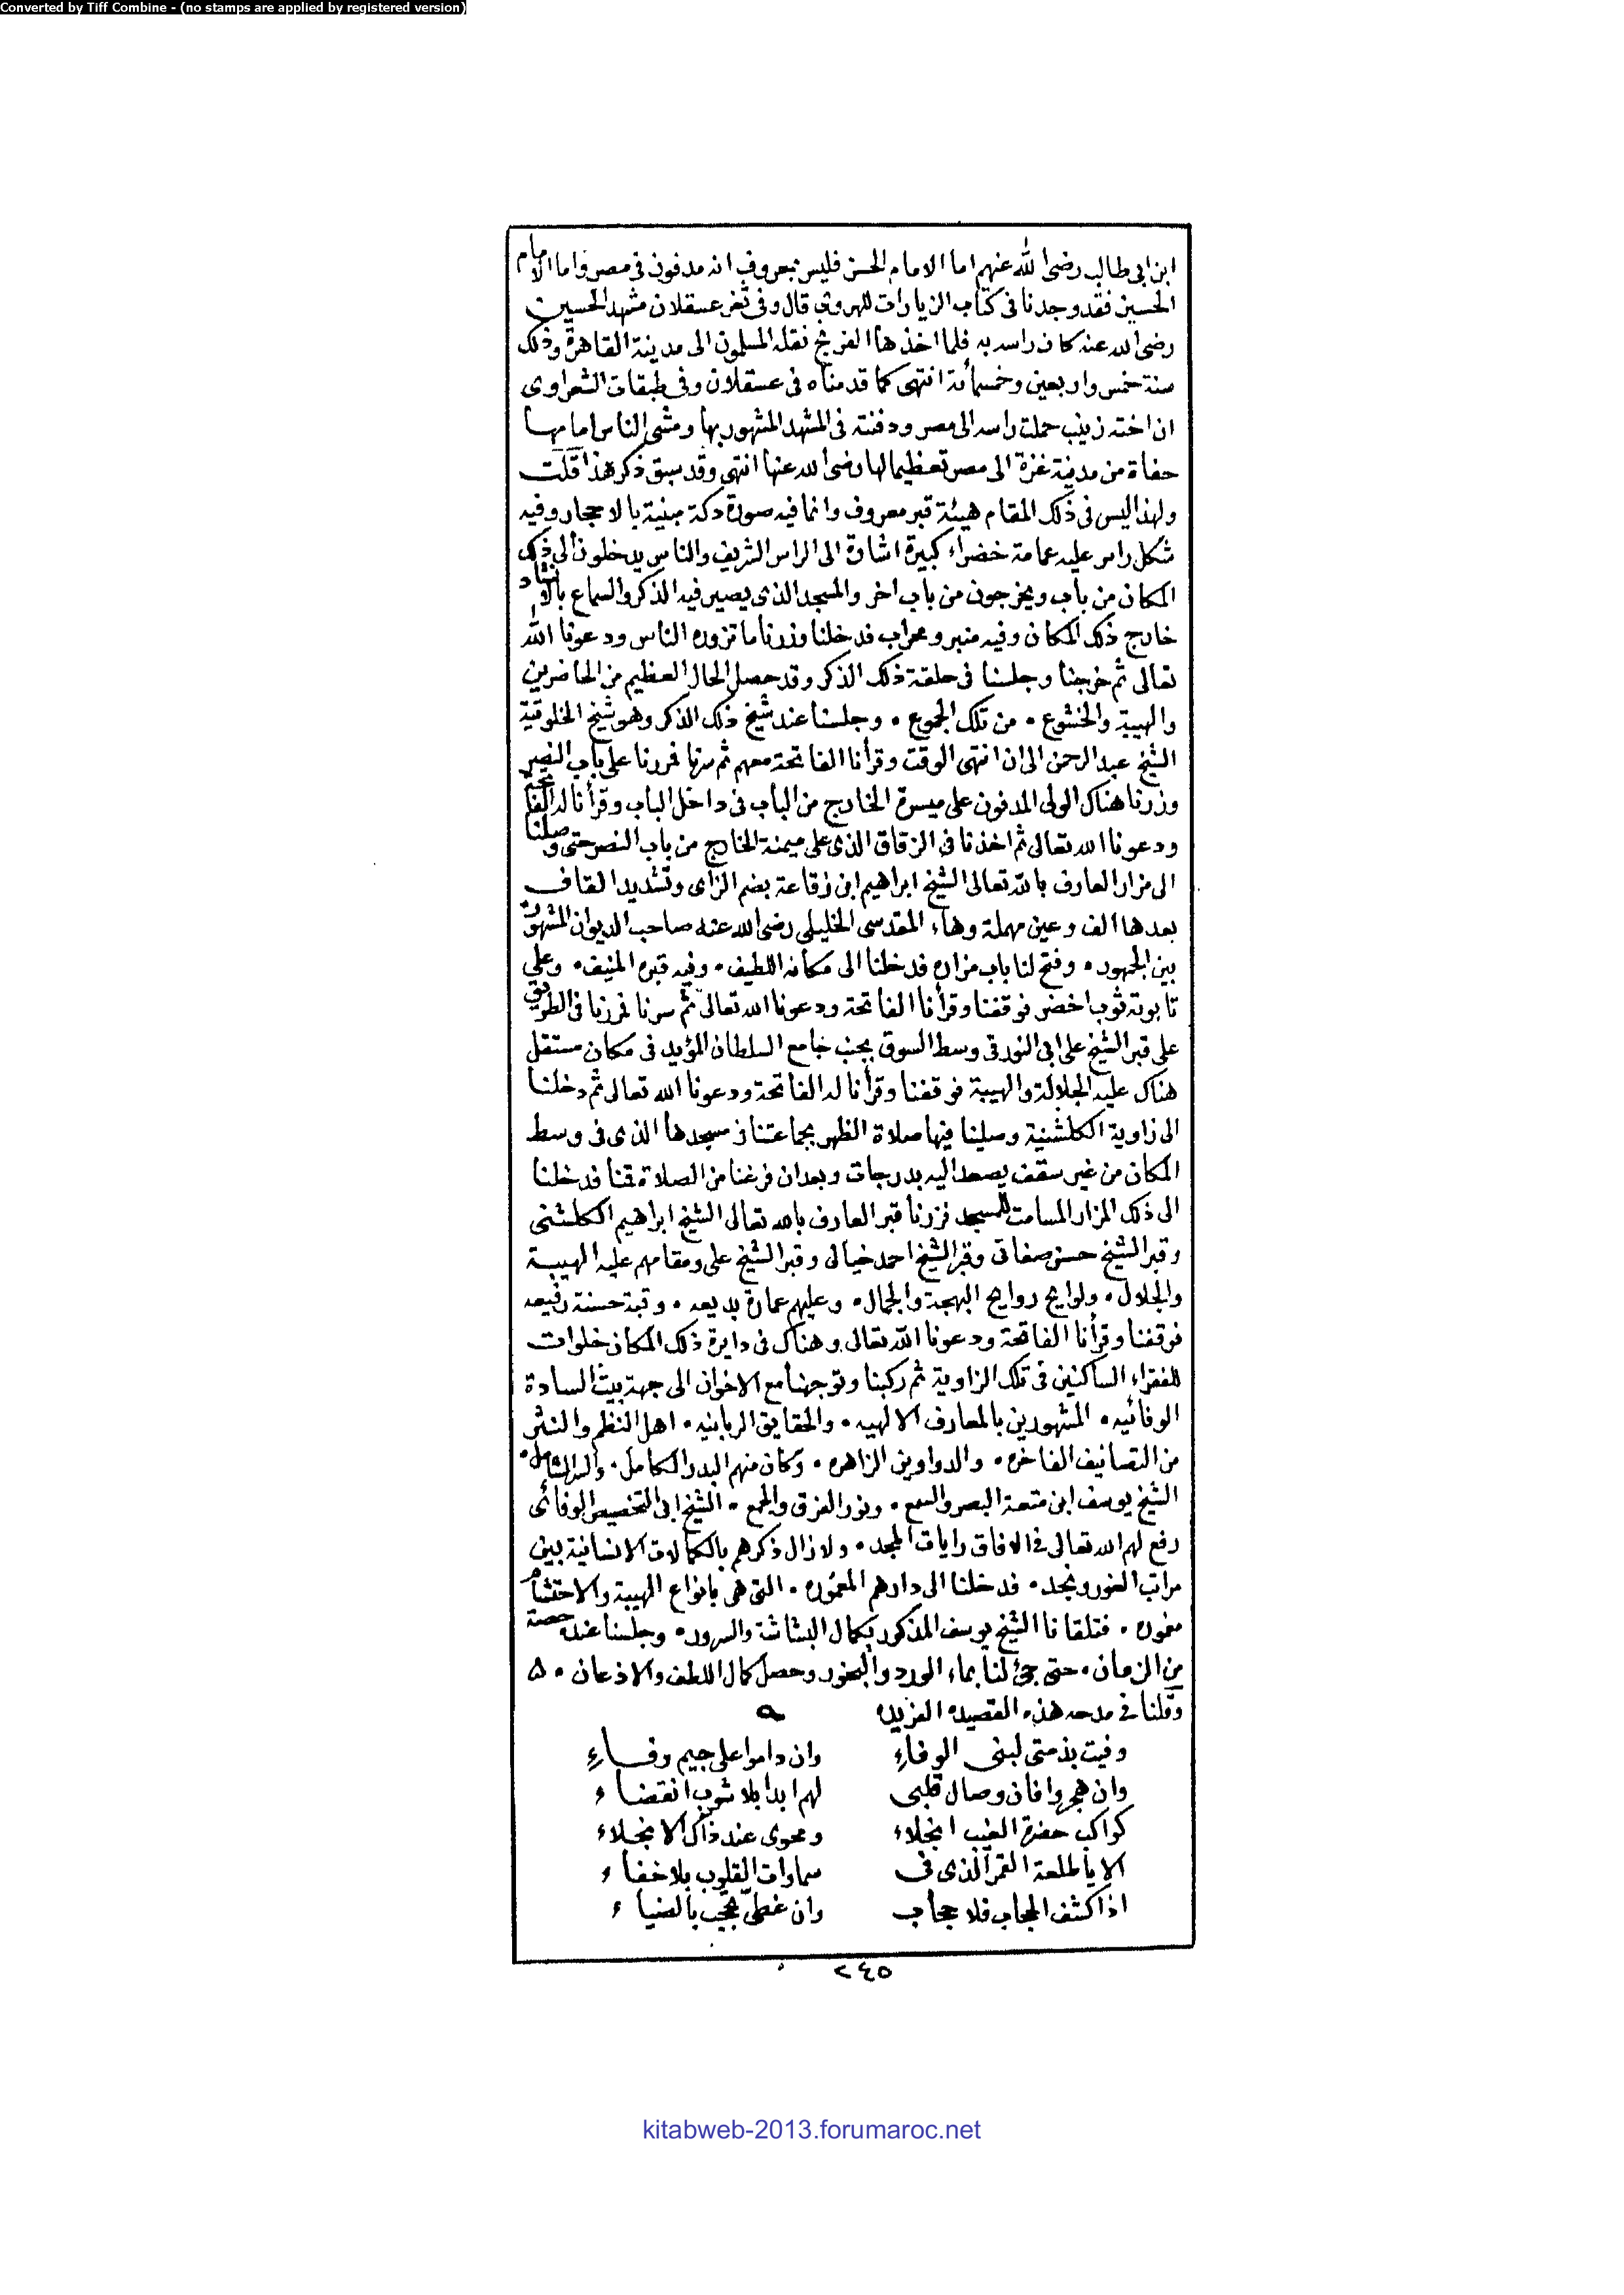 Converted by Tiff Combine - (no stamps are applied by registered version)
ابن ابى طالب رضى الله عنهم اما الامام الحسن فليس بمعروف انه مدفون فى مصر واما الامام
الحسين فقد وجدنا فى كتاب الزيارات للهروى قال وفى ثغر عسقلان مشهد الحسين
رضى الله عنه كان راسه به فلما اخذها الفرنج نقله المسلمون الى مدينة القاهرة وذلك
سنة خمس واربعين وخمسمائة انتهى كما قدمناه فى عسقلان وفى طبقات الشعراوى
ان اخته زينب حملت راسه الى مصر ودفنته فى المشهد المشهور بها ومشى الناس امامها
حفاة من مدينة غزة الى مصر تعظيما لها رضى الله عنها انتهى وقد سبق ذكر هذا قلت
ولهذا ليس فى ذلك المقام هيئة قبر معروف وانما فيه صورة دكة مبنية بالاحجار وفيه
شكل راس عليه عمامة خضراء كبيرة اشارة الى الراس الشريف والناس يدخلون الى ذلك
المكان من باب ويخرجون من باب اخر والمسجد الذى يصير فيه الذكر والسماع بالانشاد
خارج ذلك المكان وفيه منبر ومحراب فدخلنا وزرنا ما تزوره الناس ودعونا الله
تعالى ثم خرجنا وجلسنا فى حلقة ذلك الذكر وقد حصل الحال العظيم من الحاضرين
والهيبة والخشوع • من تلك الجموع • وجلسنا عند شيخ ذلك الذكر وهو شيخ الخلوتية
الشيخ عبد الرحمن الى ان انتهى الوقت وقرأنا الفاتحة معهم ثم سرنا فمررنا على باب النصر
وزرنا هناك الولى المدفون على ميسرة الخارج من الباب فى داخل الباب وقرأنا له الفاتحة
ودعونا الله تعالى ثم اخذنا فى الزقاق الذى على ميمنة الخارج من باب النصر حتى وصلنا
الى مزار العارف بالله تعالى الشيخ ابراهيم ابن زقاعة بضم الزاى وتشديد القاف
بعدها الف وعين مهملة وهاء المقدسى الخليلى رضى الله عنه صاحب الديوان المشهور
بين الجمهور • وفتح لنا باب مزاره فدخلنا الى مكانه اللطيف • وفيه قبره المنيف • وعلى
تابوته ثوب اخضر فوقفنا وقرأنا الفاتحة ودعونا الله تعالى ثم سرنا فمررنا فى الطريق
على قبر الشيخ على ابى النور فى وسط السوق بجنب جامع السلطان المؤيد فى مكان مستقل
هناك عليه الجلالة والهيبة فوقفنا وقرأنا له الفاتحة ودعونا الله تعالى ثم دخلنا
الى زاوية الكلشنية وصلينا فيها صلاة الظهر بجماعتنا فى مسجدها الذى فى وسط
المكان من غير سقف يصعد اليه بدرجات وبعد ان فرغنا من الصلاة قمنا فدخلنا
الى ذلك المزار المسامت للمسجد فزرنا قبر العارف بالله تعالى الشيخ ابراهيم الكلشنى
وقبر الشيخ حسن صفاتى وقبر الشيخ احمد خيالى وقبر الشيخ على ومقامهم عليه الهيبة
والجلال • ولوايح روايح البهجة والجمال • وعليهم عمارة بديعه • وقبة حسنة رفيعه
فوقفنا وقرأنا الفاتحة ودعونا الله تعالى وهناك فى دايرة ذلك المكان خلوات
للفقراء الساكنين فى تلك الزاوية ثم ركبنا وتوجهنا مع الاخوان الى جهة بيت السادة
الوفائيه • المشهورين بالمعارف الالهيه • والحقايق الربانيه • اهل النظم والنثر
من التصانيف الفاخره • والدواوين الزاهره • وكان منهم البدر الكامل • والبر الشامل •
الشيخ يوسف ابن متعة البصر والسمع • ونور الفرق والجمع • الشيخ ابى التخصيص الوفائى
رفع لهم الله تعالى فى الافاق رايات المجد • ولا زال ذكرهم بالكمالات الانسانية بين
مراتب الغور ونجد • فدخلنا الى دارهم المعموره • التى هى بانواع الهيبة والاحتشام
مغموره • فتلقانا الشيخ يوسف المذكور بكمال البشاشة والسرور • وجلسنا عنده حصة
من الزمان • حتى جئ لنا بماء الورد والبخور وحصل كمال اللطف والاذعان • ه
وقلنا فى مدحه هذه القصيدة الفريده ه
وفيت بذمتى لبنى الوفاءِ وان داموا على جيم وفاءِ
وان هجروا فان وصال قلبى لهم ابدا بلا شوب انقضاء
كواكب حضرة الغيب انجلاء ومحوى عند ذاك الانجلاء
الا يا طلعة القمر الذى فى سماوات القلوب بلا خفاء
اذا كشف الحجاب فلا حجاب وان غطى تحجب بالضياء
٢٤٥
kitabweb-2013.forumaroc.net